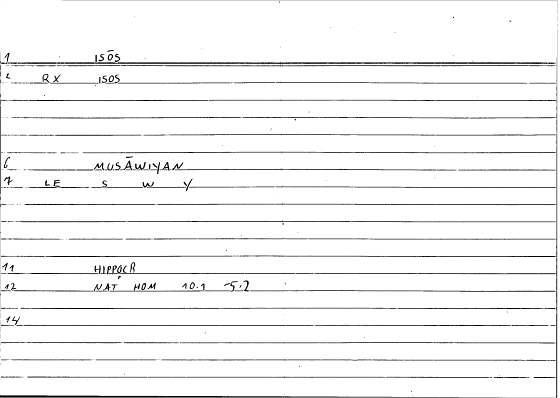 1 ISŌS
2 RX ISOS
6 MUSĀWIYAN
7 LE S W Y
11 HIPPOCR
12 NAT HOM 10.1
14